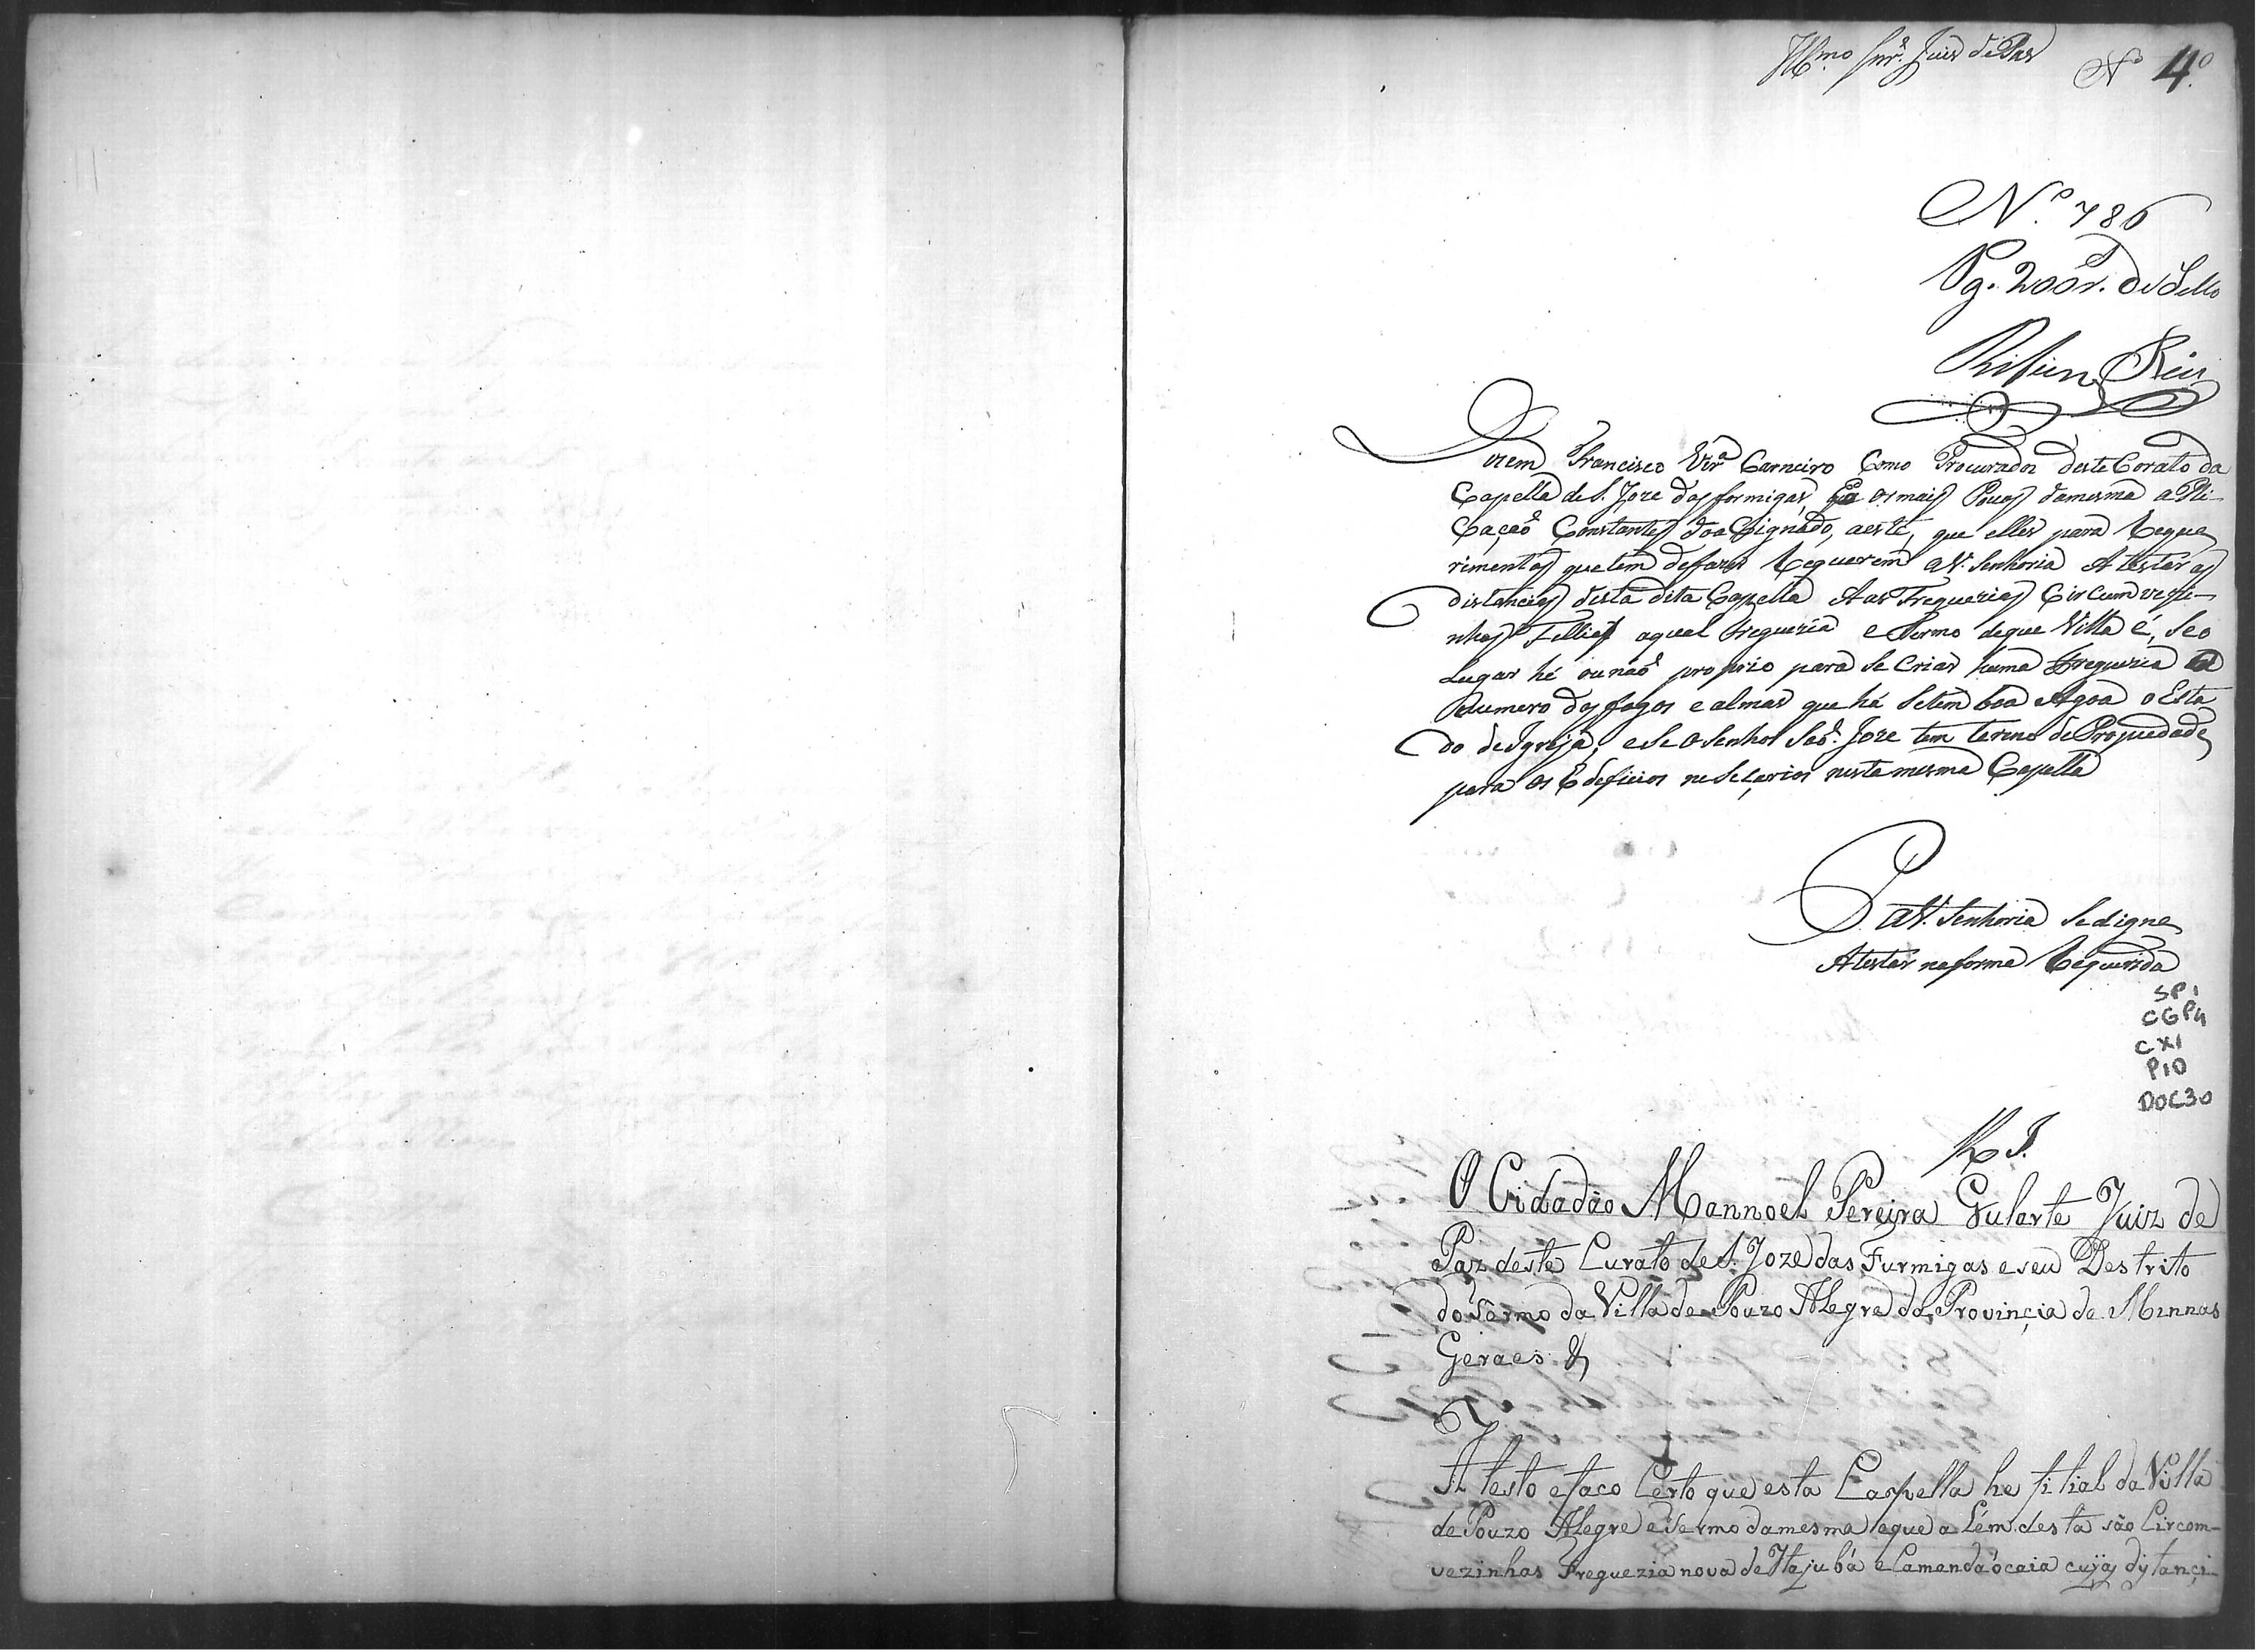 Illmo Snr. Juis de Pas
Nº 4º
N.º 786
Pg. 200 r. de Sello
Reis
Dizem Francisco Vira Carneiro Como Procurador deste Corato da
Capella de S. Joze das formigas, Ea os mais Povos damesma aPli-
Caçaõ Constantes doaSignado, aeste, que elles para Reque
rimentos que tem defazer Requerem aV. Senhoria Atestar as
distancias desta dita Capella Aas Freguezias Circumvezi-
nhas Fellial aqual freguezia e Termo deque Villa é, Seo
Lugar hé ounaõ proprio para Se Criar huma Freguezia o
Numero dos fogos e almas que há Setem boa Agoa o Esta
do de Igreja, eSe oSenhor Saõ Joze tem tereno de Propuedade
para os Edeficios neseçarios nesta mesma Capella
P. aV. Senhoria Sedigne
Atestar naforma Requerida
SP1
CGP4
CX1
P10
DOC30
R J.
O Cidadão Mannoel Pereira Gularte Juiz de
Paz deste Curato de S. Joze das Furmigas e seu Destrito
do Termo da Villa de Pouzo Alegre da Provinçia de Minnas
Geraes &
Atesto efaco Certo que esta Cappella he filial da Villa
de Pouzo Alegre e Termo damesma eque a Lém desta são Circom-
vezinhas Freguezia nova de Itajubá e Camandaócaia cujas dystançi-